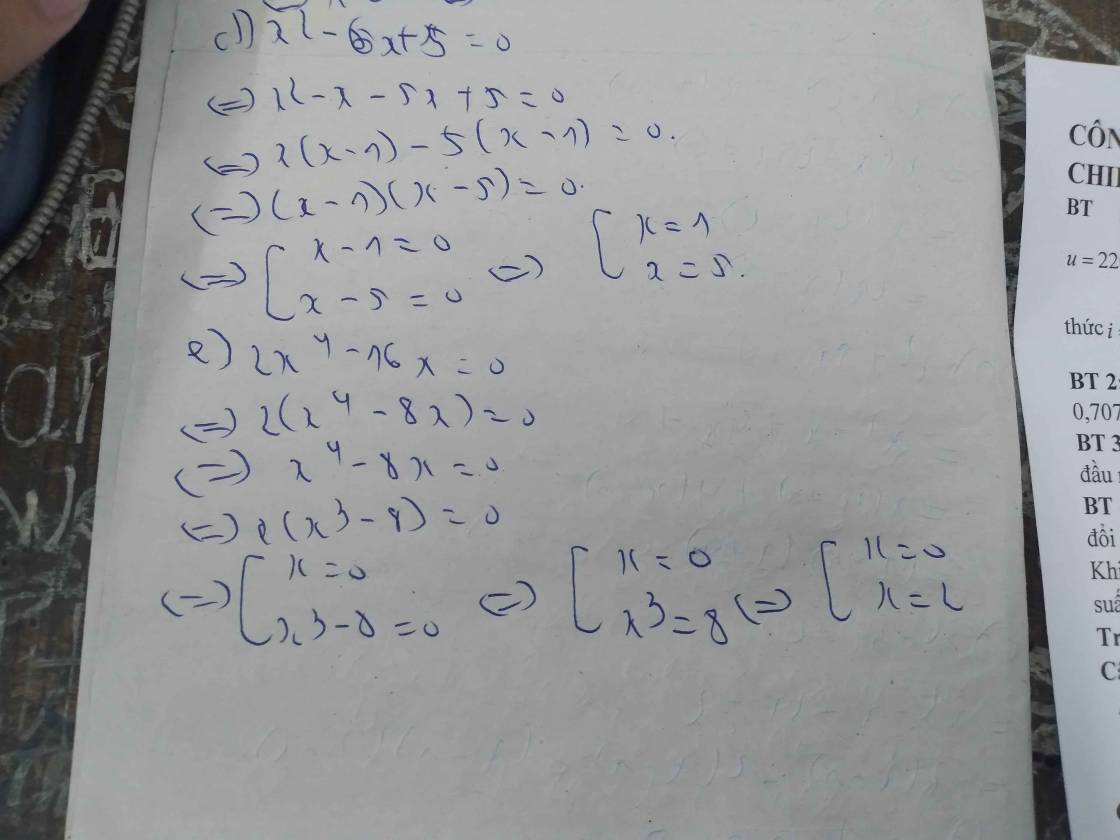 d) x² - 6x + 5 = 0
<=> x² - x - 5x + 5 = 0
<=> x(x - 1) - 5(x - 1) = 0.
<=> (x - 1)(x - 5) = 0.
<=> [ x - 1 = 0 <=> [ x = 1
x - 5 = 0 x = 5.
e) 2x⁴ - 16x = 0
<=> 2(x⁴ - 8x) = 0
<=> x⁴ - 8x = 0
<=> x(x³ - 8) = 0
<=> [ x = 0 <=> [ x = 0 <=> [ x = 0
x³ - 8 = 0 x³ = 8 x = 2
CÔN
CHI
BT
u = 22
thức i
BT 2
0,707
BT 3
đầu
BT
đổi
Khi
suấ
Tr